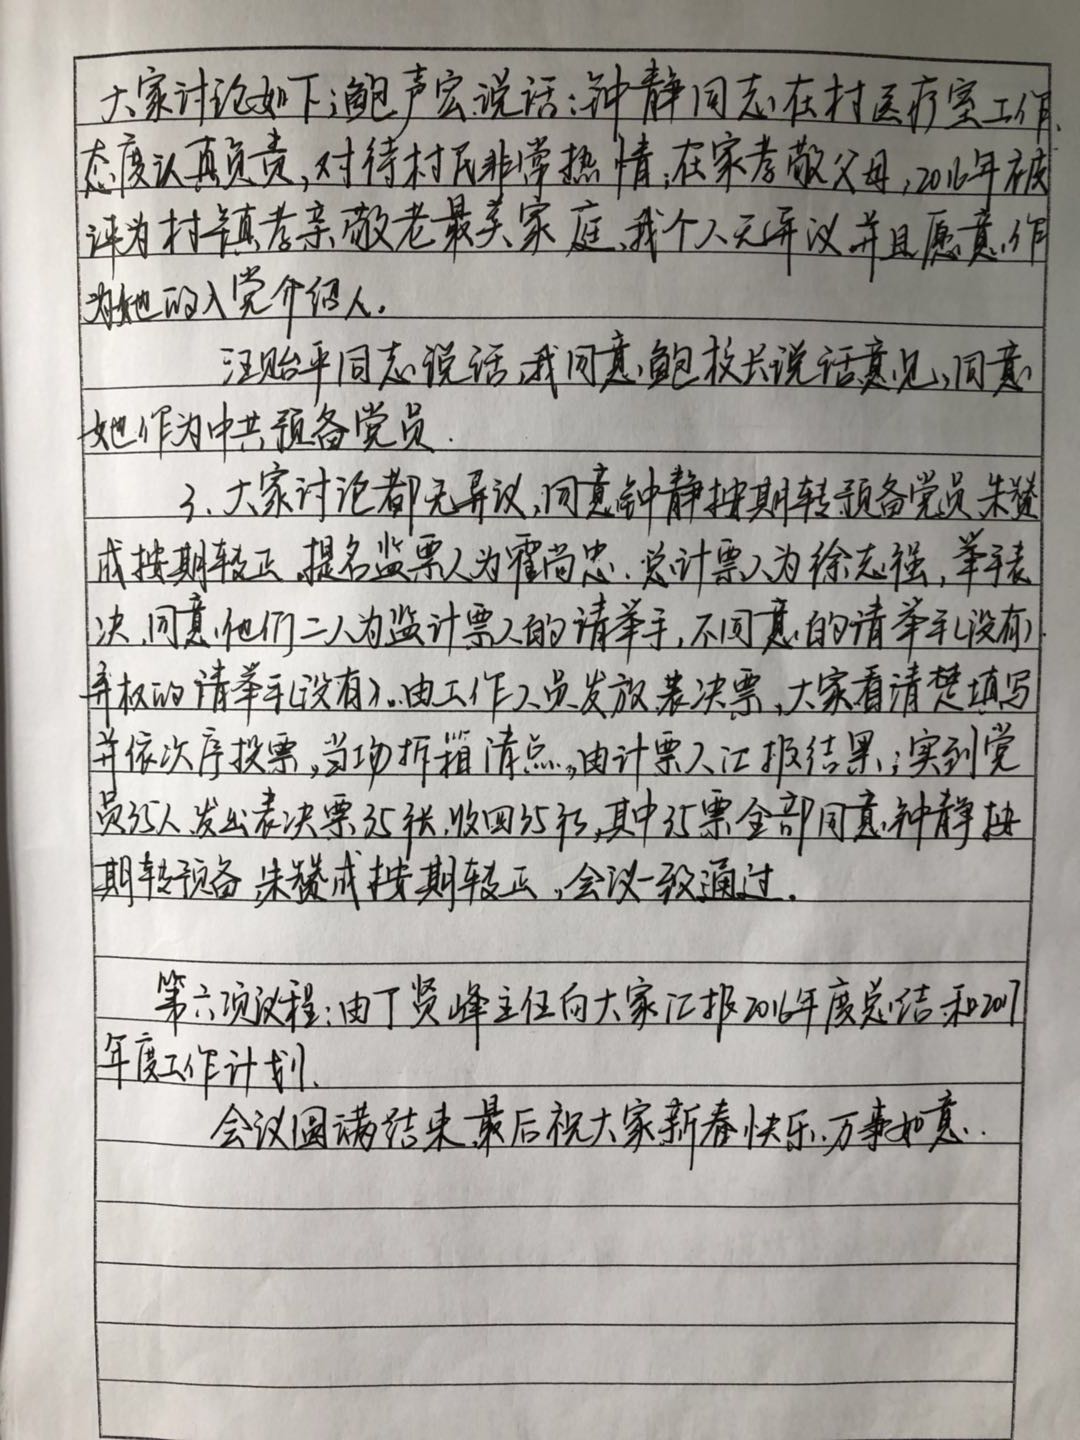 大家讨论如下:鲍声宏说话:钟静同志在村医疗室工作,
态度认真负责,对待村民非常热情;在家孝敬父母,2016年被
评为村镇孝亲敬老最美家庭、我个人无异议并且愿意作
为她的入党介绍人。
汪贻平同志说话,我同意鲍校长说话意见,同意
她作为中共预备党员.
3、大家讨论都无异议,同意钟静按期转预备党员朱赞
成按期转正,提名监票人为霍尚忠.总计票人为徐志强,举手表
决,同意他们二人为监计票人的请举手,不同意的请举手(没有)
弃权的请举手(没有)。由工作人员发放表决票,大家看清楚填写
并依次序投票,当场拆箱清点,由计票人汇报结果;实到党
员35人发出表决票35张,收回35张,其中35票全部同意钟静按
期转预备,朱赞成按期转正,会议一致通过.
第六项议程:由丁贤峰主任向大家汇报2016年度总结和2017
年度工作计划.
会议圆满结束,最后祝大家新春快乐、万事如意.